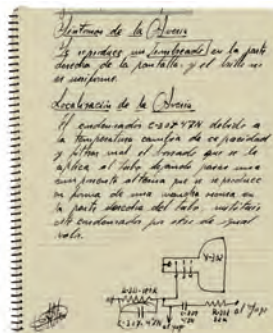 Síntomas de la Avería
Se reproduce un sombreado en la parte
derecha de la pantalla, y el brillo no
es uniforme.
Localización de la Avería
El condensador C-307 47N debido a
la temperatura cambia de capacidad
y filtra mal el borrado que se le
aplica al tubo dejando pasar una
componente alterna que se reproduce
en forma de una mancha negra en
la parte derecha del tubo, sustituir
el condensador por otro de igual
valor.
al yugo
C-307 47N
al yugo